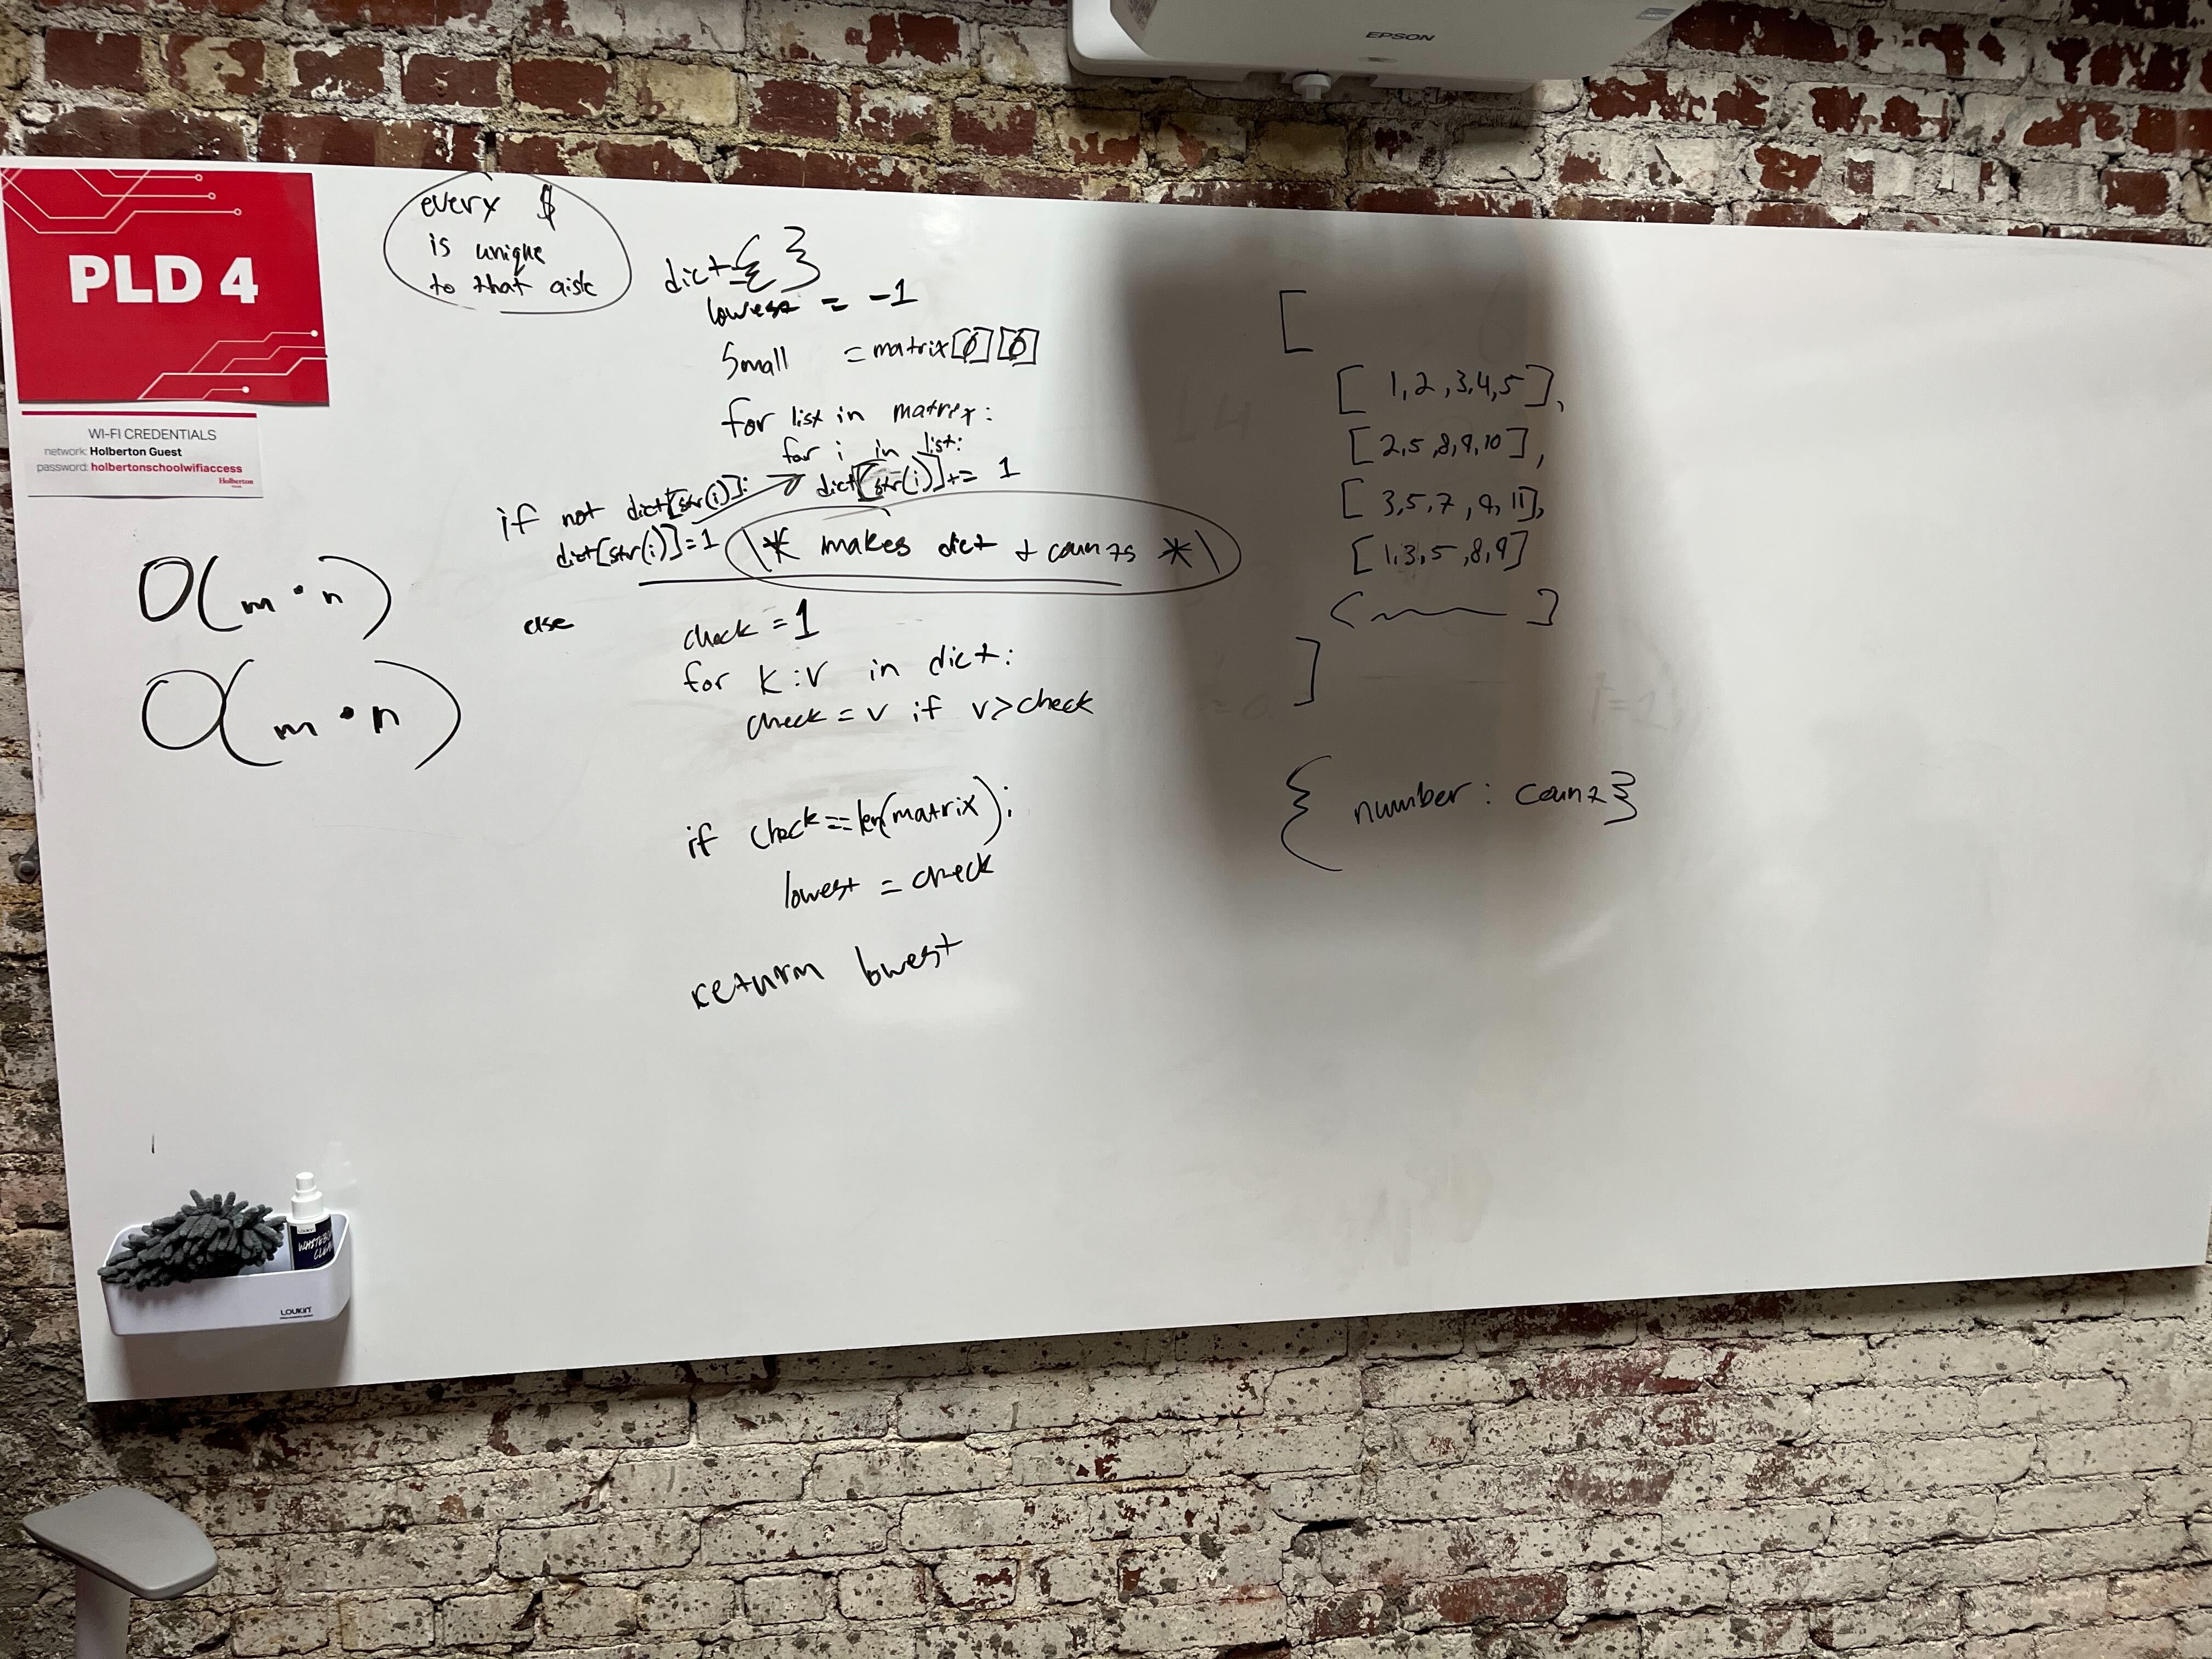 EPSON
PLD 4
WI-FI CREDENTIALS
network: Holberton Guest
password: holbertonschoolwifiaccess
Holberton
every $
is unique
to that aisle
dict={ }
lowest = -1
Small = matrix[0][0]
for list in matrix:
for i in list:
if not dict[str(i)]:
dict[str(i)]+= 1
dict[str(i)]=1
\* makes dict + counts *\
else
check = 1
for k:v in dict:
check = v if v>check
if check==len(matrix):
lowest = check
return lowest
O(m·n)
O(m·n)
[
[ 1,2,3,4,5 ],
[ 2,5,8,9,10 ],
[ 3,5,7,9,11],
[ 1,3,5,8,9]
]
{ number: count}
LOUKIN